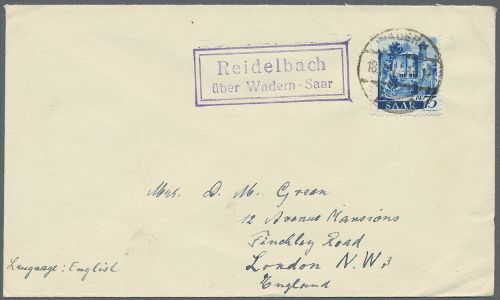 WADERN
Reidelbach
über Wadern-Saar
SAAR 75
Mrs. D. M. Green
12 Avenue Mansions
Finchley Road
London N.W3
England
Language: English